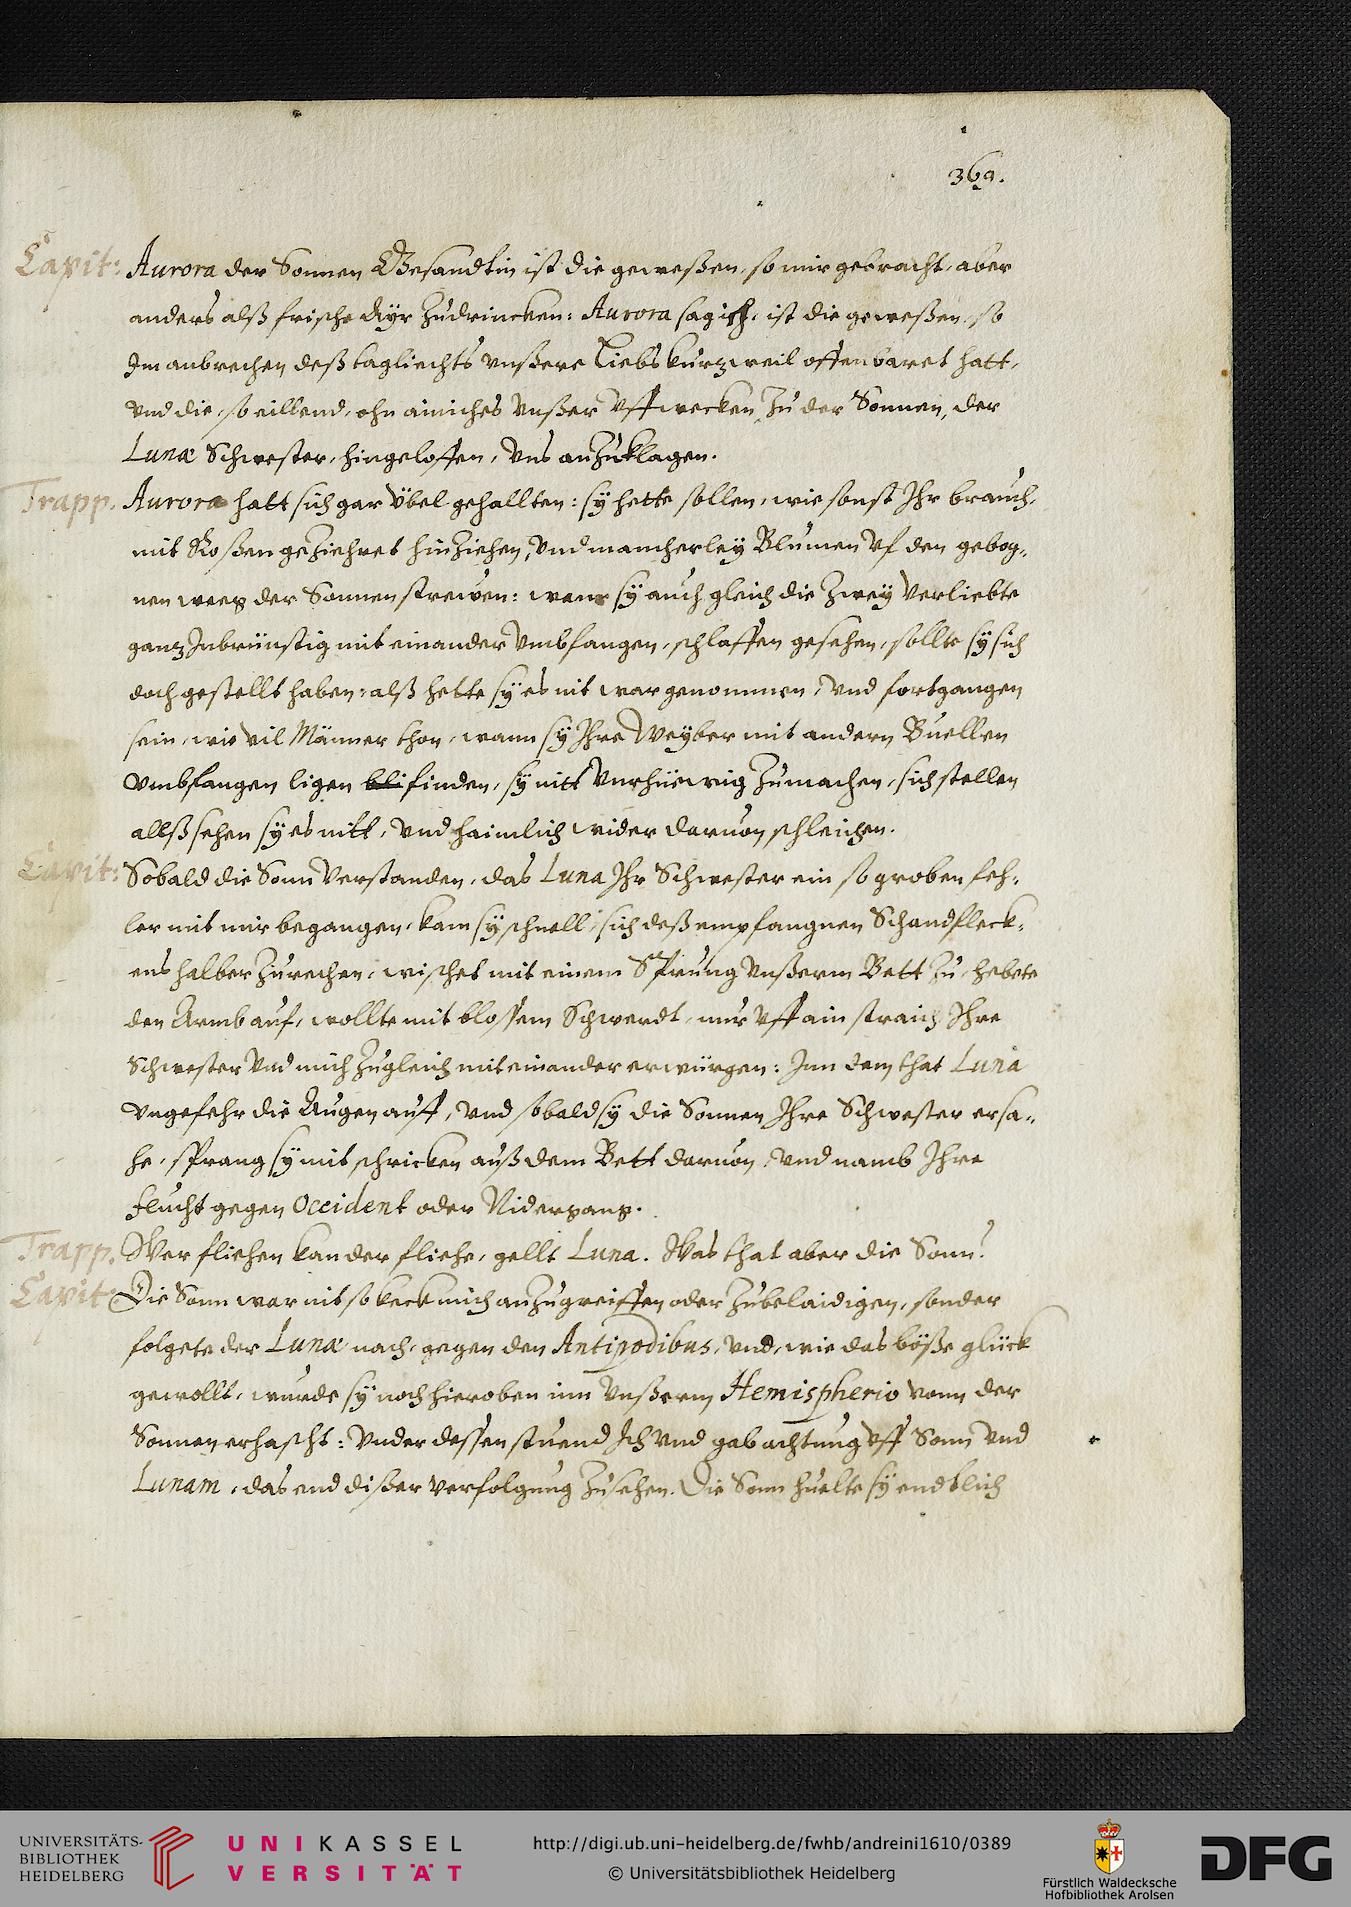 369.
Capit: Aurora der Sonnen Gesandtin ist die geweßen, so mir gebracht, aber
anders alß frische Ayr zudrincken: Aurora sag ich, ist die geweßen, so
Im anbrechen deß tagliechts vnßere Liebskurzweil offenbaret hatt,
vnd die, so eillend, ohn ainiches vnßer vffwecken, zu der Sonnen, der
Lunæ Schwester, hingeloffen, vns anzuklagen.
Trapp. Aurora hatt sich gar vbel gehallten: sÿ hette sollen, wie sonst Ihr brauch,
mit Roßen geziehret hinziehen, vnd mancherleÿ Blumen vf den gebog-
nen weeg der Sonnen strewen: wann sÿ auch gleich die zweÿ verliebte
ganz Inbrünstig mit einander vmbfangen, schlaffen gesehen, sollte sÿ sich
doch gestellt haben, alß hette sÿ es nit wargenommen, vnd fortgangen
sein, wie vil Männer thon, wann sÿ Ihre Weÿber mit andern Buellen
vmbfangen ligen bli finden, sÿ nitt vnrhüewig zumachen, sich stellen
allß sehen sÿ es nitt, vnd haimlich wider daruon schleichen.
Capit: Sobald die Sonn verstanden, das Luna Ihr Schwester ein so groben feh-
ler mit mir begangen, kam sÿ schnell, sich deß empfangnen Schandfleck-
ens halber zurechen, wischet mit einem Sprung vnßerm Bett zu, hebete
den Armb auf, wollte mit blossem Schwerdt, nur vff ain straich Ihre
Schwester vnd mich zugleich mit einander erwürgen: Inn dem that Luna
vngefehr die Augen auff, vnd sobald sÿ die Sonnen Ihre Schwester ersa-
he, sprang sÿ mit schricken auß dem Bett daruon, vnd namb Ihre
flucht gegen Occident oder Nidergang.
Trapp. Wer fliehen kan der fliehe, gellt Luna. Was that aber die Sonn?
Capit: Die Sonn war nit so keck mich anzugreiffen oder zubelaidigen, sonder
folgete der Lunæ nach, gegen den Antipodibus, vnd, wie das böße glück
gewollt, wurde sÿ noch hieroben inn vnßerm Hemispherio vonn der
Sonnen erhascht: vnder dessen stuend Ich vnd gab achtung vff Sonn vnd
Lunam, das end dißer verfolgung zusehen. Die Sonn huelte sÿ endtlich
UNIVERSITÄTS-
BIBLIOTHEK
HEIDELBERG
UNIKASSEL
VERSITÄT
http://digi.ub.uni-heidelberg.de/fwhb/andreini1610/0389
© Universitätsbibliothek Heidelberg
Fürstlich Waldecksche
Hofbibliothek Arolsen
DFG